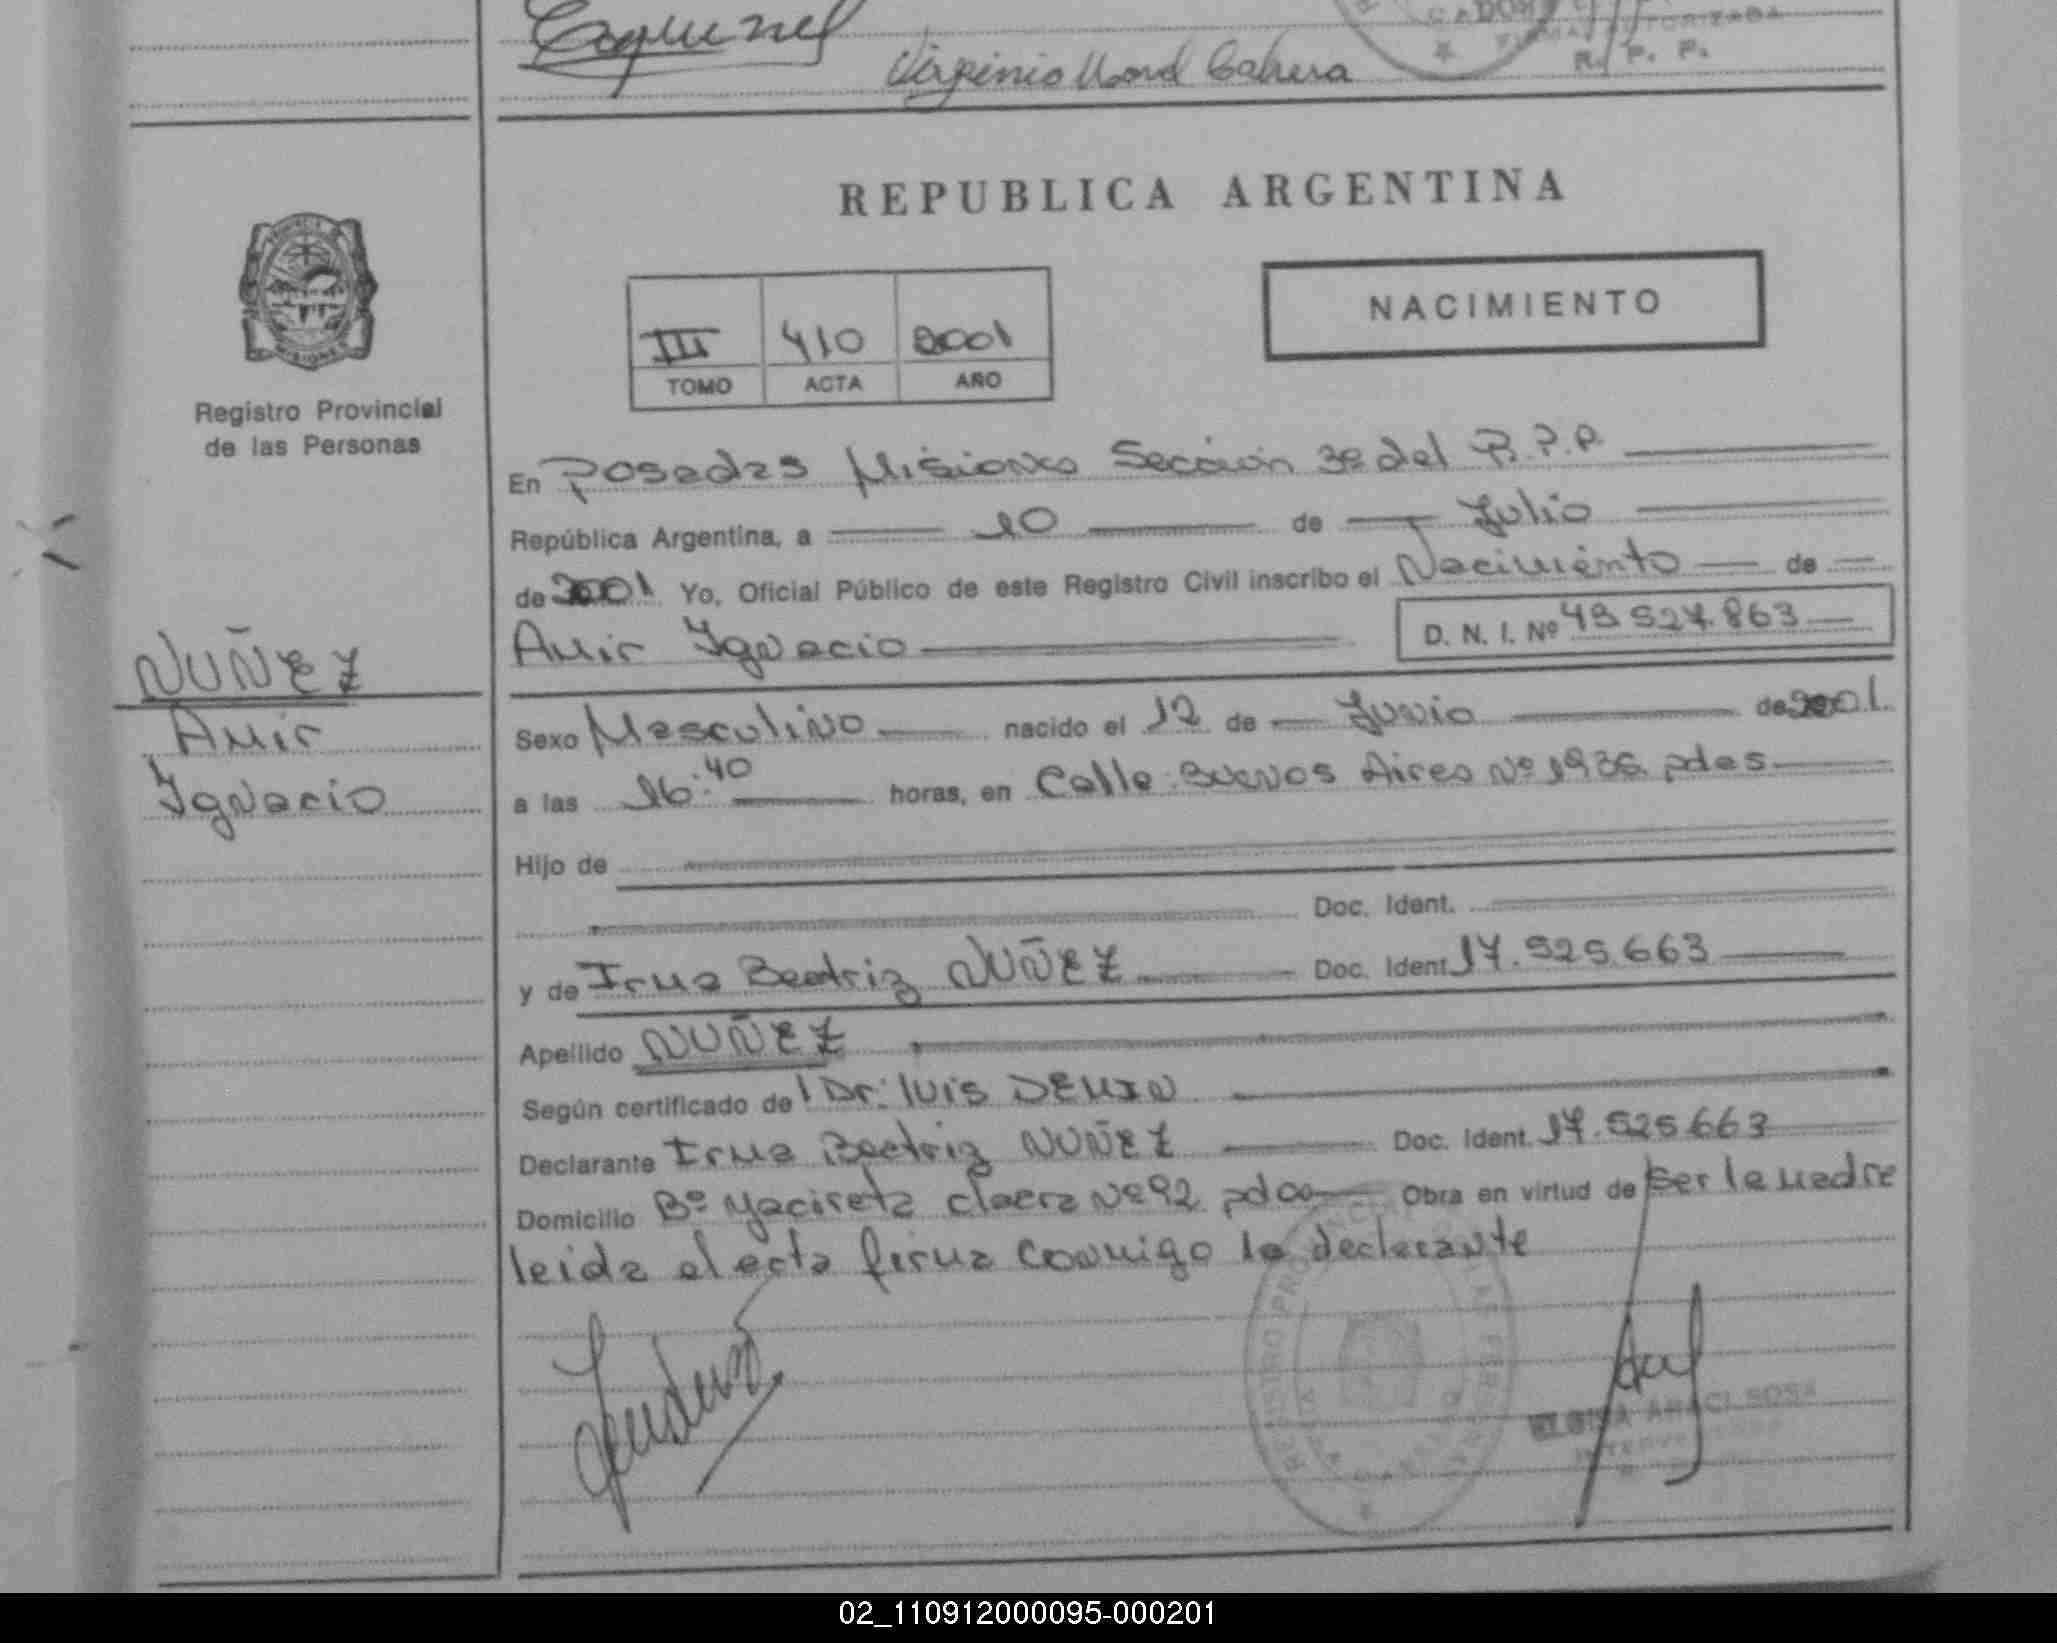 Virginia Mard Cabrera
R. P. P.
REPUBLICA ARGENTINA
NACIMIENTO
III 410 2001
TOMO ACTA AÑO
Registro Provincial
de las Personas
En Posadas Misiones Sección 3º del R.P.P.
República Argentina, a 10 de Julio
de 2001 Yo, Oficial Público de este Registro Civil inscribo el Nacimiento de
Amir Ignacio D. N. I. Nº 43 527.863
NUÑEZ
Amir
Ignacio
Sexo Masculino nacido el 12 de Junio de 2001.
a las 16:40 horas, en Calle Buenos Aires Nº 1936 pdas
Hijo de
Doc. Ident.
y de Irma Beatriz NUÑEZ Doc. Ident 17.525.663
Apellido NUÑEZ
Según certificado de Dr: Luis DEMIN
Declarante Irma Beatriz NUÑEZ Doc. Ident. 17.525.663
Domicilio Bº Yacireta chacra Nº 92 pdas Obra en virtud de ser la madre
leida el acta firma conmigo la declarante
ELOISA ARACI SOSA
02_110912000095-000201